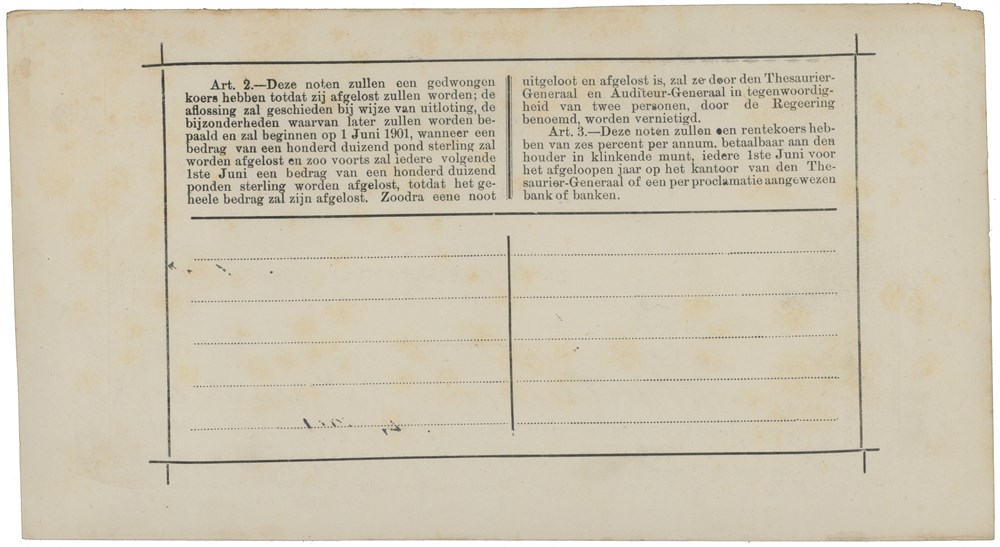 Art. 2.—Deze noten zullen een gedwongen
koers hebben totdat zij afgelost zullen worden; de
aflossing zal geschieden bij wijze van uitloting, de
bijzonderheden waarvan later zullen worden be-
paald en zal beginnen op 1 Juni 1901, wanneer een
bedrag van een honderd duizend pond sterling zal
worden afgelost en zoo voorts zal iedere volgende
1ste Juni een bedrag van een honderd duizend
ponden sterling worden afgelost, totdat het ge-
heele bedrag zal zijn afgelost. Zoodra eene noot
uitgeloot en afgelost is, zal ze door den Thesaurier-
Generaal en Auditeur-Generaal in tegenwoordig-
heid van twee personen, door de Regeering
benoemd, worden vernietigd.
Art. 3.—Deze noten zullen een rentekoers heb-
ben van zes percent per annum, betaalbaar aan den
houder in klinkende munt, iedere 1ste Juni voor
het afgeloopen jaar op het kantoor van den The-
saurier-Generaal of een per proclamatie aangewezen
bank of banken.